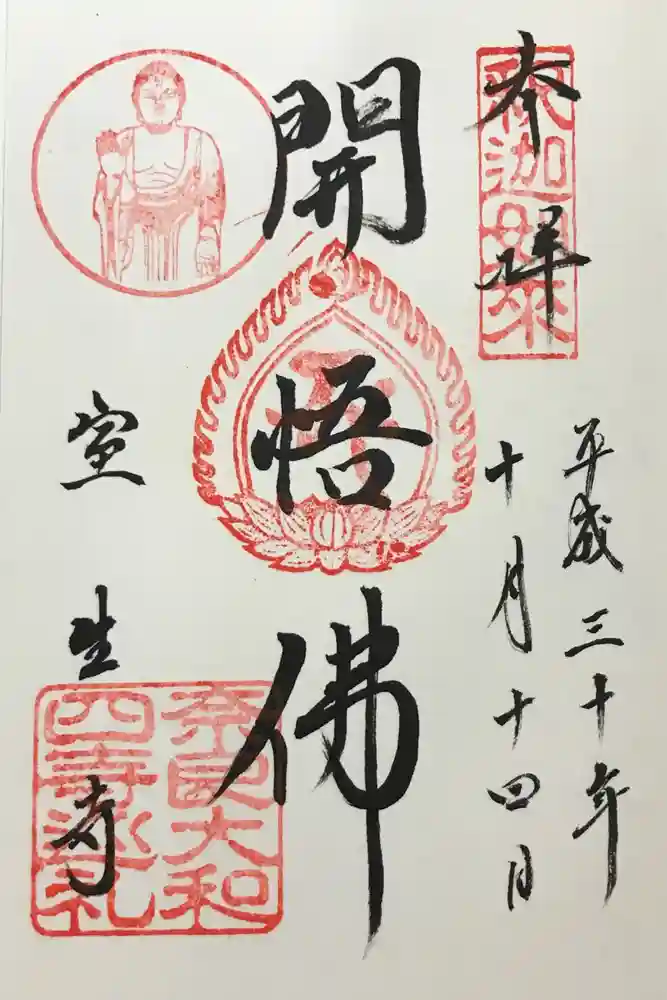 奉拝
釈迦如来
平成三十年
十月十四日
開悟佛
室生寺
奈良大和
四寺巡礼